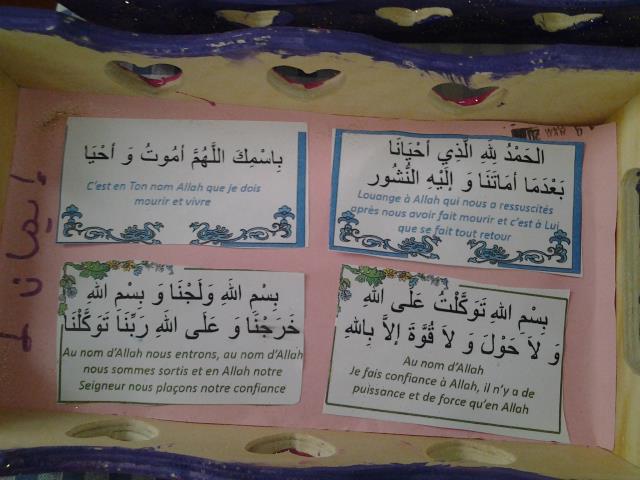 بِاسْمِكَ اللَّهُمَّ أَمُوتُ وَ أَحْيَا
C'est en Ton nom Allah que je dois
mourir et vivre
الحَمْدُ لِلهِ الَّذِي أَحْيَانَا
بَعْدَمَا أَمَاتَنَا وَ إِلَيْهِ النُّشُور
Louange à Allah qui nous a ressuscités
après nous avoir fait mourir et c'est à Lui
que se fait tout retour
بِسْمِ اللهِ وَلَجْنَا وَ بِسْمِ اللهِ
خَرَجْنَا وَ عَلَى اللهِ رَبِّنَا تَوَكَّلْنَا
Au nom d'Allah nous entrons, au nom d'Allah
nous sommes sortis et en Allah notre
Seigneur nous plaçons notre confiance
بِسْمِ اللهِ تَوَكَّلْتُ عَلَى اللهِ
وَ لاَ حَوْلَ وَ لاَ قُوَّةَ إِلاَّ بِاللهِ
Au nom d'Allah
Je fais confiance à Allah, il n'y a de
puissance et de force qu'en Allah